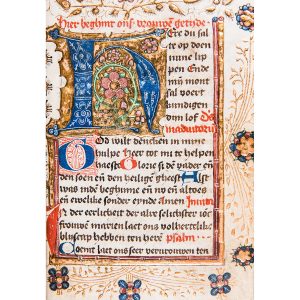 Hier beghint ons vrouwen getide
Ere du sal
te op doen
mine lip
pen Ende
min mont
sal voert
kundigen
dim lof Des
in adiutoriu
God wilt dencken in mine
hulpe Heer tot mi te helpen
haest Glorie si dē vader ende
den soen eñ den heilighē gheest Alst
was inde beghinne eñ nv eñ altoes
eñ ewelike sonder eynde Amen
In der eerlicheit der alre
vrouwen marien laet ons vollentelike
bliscap hebben ten here Psalm
Coemt laet ons seer vervrouwen ten